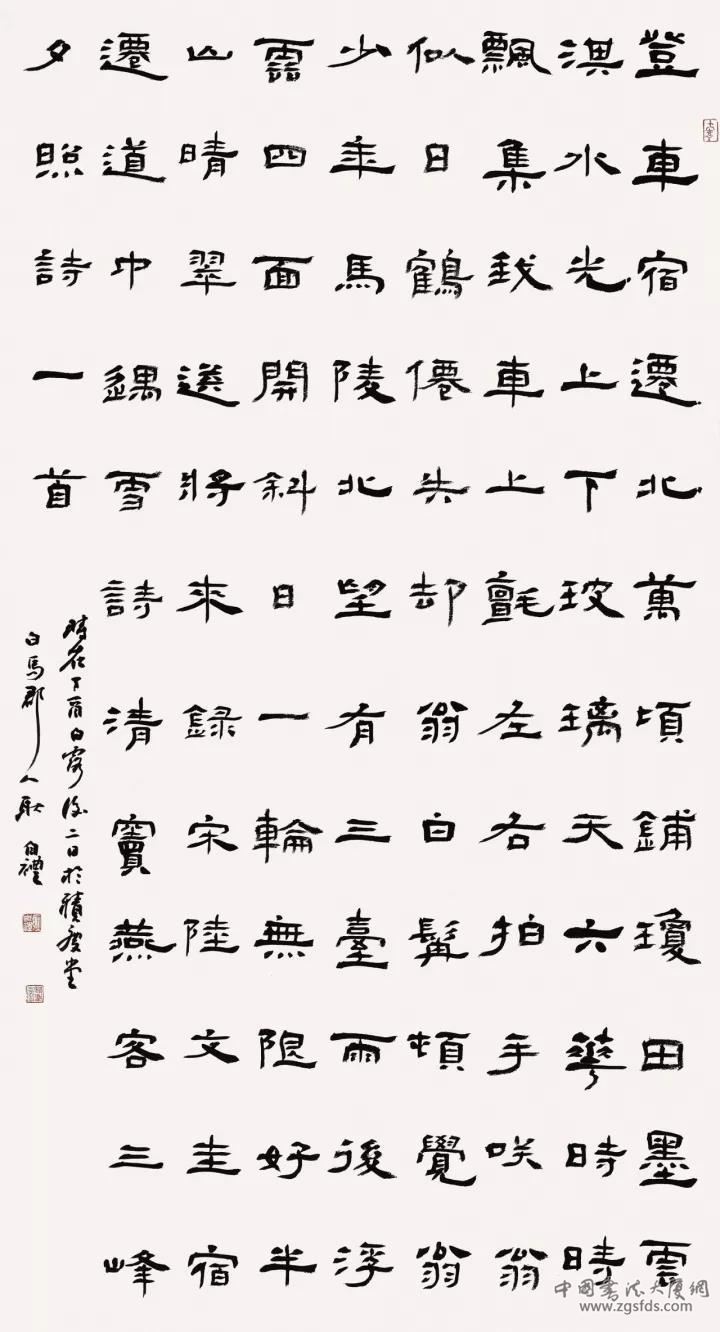 登車宿遷北萬頃鋪瓊田墨雲
淇水光上下玻璃天六華時時
飄集我車上氈左右拍手咲翁
似日鶴僊失却翁白髯頓覺翁
少年馬陵北望有三臺雨後浮
雲四面開斜日一輪無限好半
山晴翠送將來錄宋陸文圭宿
遷道中遇雪詩清竇燕客三峰
夕照詩一首
時在丁酉白露後二日於積慶堂
白馬郡人耿自禮
中國書法大廈網
www.zgsfds.com